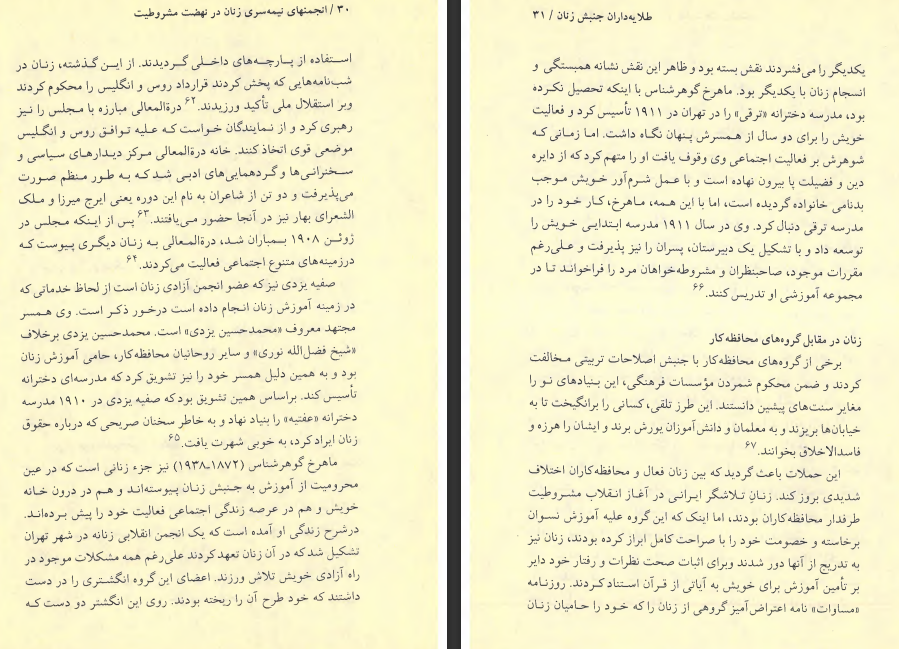 ۳۰ / انجمنهای نیمه‌سری زنان در نهضت مشروطیت
استفاده از پارچه‌های داخلی گردیدند. از این گذشته، زنان در
شب‌نامه‌هایی که پخش کردند قرارداد روس و انگلیس را محکوم کردند
وبر استقلال ملی تأکید ورزیدند.۶۲ درةالمعالی مبارزه با مجلس را نیز
رهبری کرد و از نمایندگان خواست که علیه توافق روس و انگلیس
موضعی قوی اتخاذ کنند. خانه درةالمعالی مرکز دیدارهای سیاسی و
سخنرانی‌ها و گردهمایی‌های ادبی شد که به طور منظم صورت
می‌پذیرفت و دو تن از شاعران به نام این دوره یعنی ایرج میرزا و ملک
الشعرای بهار نیز در آنجا حضور می‌یافتند.۶۳ پس از اینکه مجلس در
ژوئن ۱۹۰۸ بمباران شد، درةالمعالی به زنان دیگری پیوست که
درزمینه‌های متنوع اجتماعی فعالیت می‌کردند.۶۴
صفیه یزدی نیز که عضو انجمن آزادی زنان است از لحاظ خدماتی که
در زمینه آموزش زنان انجام داده است درخور ذکر است. وی همسر
مجتهد معروف «محمدحسین یزدی» است. محمدحسین یزدی برخلاف
«شیخ فضل‌الله نوری» و سایر روحانیان محافظه‌کار، حامی آموزش زنان
بود و به همین دلیل همسر خود را نیز تشویق کرد که مدرسه‌ای دخترانه
تأسیس کند. براساس همین تشویق بود که صفیه یزدی در ۱۹۱۰ مدرسه
دخترانه «عفتیه» را بنیاد نهاد و به خاطر سخنان صریحی که درباره حقوق
زنان ایراد کرد، به خوبی شهرت یافت.۶۵
ماهرخ گوهرشناس (۱۸۷۲ـ۱۹۳۸) نیز جزء زنانی است که در عین
محرومیت از آموزش به جنبش زنان پیوسته‌اند و هم در درون خانه
خویش و هم در عرصه زندگی اجتماعی فعالیت خود را پیش برده‌اند.
درشرح زندگی او آمده است که یک انجمن انقلابی زنانه در شهر تهران
تشکیل شد که در آن زنان تعهد کردند علی‌رغم همه مشکلات موجود در
راه آزادی خویش تلاش ورزند. اعضای این گروه انگشتری را در دست
داشتند که خود طرح آن را ریخته بودند. روی این انگشتر دو دست که
طلایه‌داران جنبش زنان / ۳۱
یکدیگر را می‌فشردند نقش بسته بود و ظاهر این نقش نشانه همبستگی و
انسجام زنان با یکدیگر بود. ماهرخ گوهرشناس با اینکه تحصیل نکرده
بود، مدرسه دخترانه «ترقی» را در تهران در ۱۹۱۱ تأسیس کرد و فعالیت
خویش را برای دو سال از همسرش پنهان نگاه داشت. اما زمانی که
شوهرش بر فعالیت اجتماعی وی وقوف یافت او را متهم کرد که از دایره
دین و فضیلت پا بیرون نهاده است و با عمل شرم‌آور خویش موجب
بدنامی خانواده گردیده است، اما با این همه، ماهرخ، کار خود را در
مدرسه ترقی دنبال کرد. وی در سال ۱۹۱۱ مدرسه ابتدایی خویش را
توسعه داد و با تشکیل یک دبیرستان، پسران را نیز پذیرفت و علی‌رغم
مقررات موجود، صاحبنظران و مشروطه‌خواهان مرد را فراخواند تا در
مجموعه آموزشی او تدریس کنند.۶۶
زنان در مقابل گروه‌های محافظه‌کار
برخی از گروه‌های محافظه‌کار با جنبش اصلاحات تربیتی مخالفت
کردند و ضمن محکوم شمردن مؤسسات فرهنگی، این بنیادهای نو را
مغایر سنت‌های پیشین دانستند. این طرز تلقی، کسانی را برانگیخت تا به
خیابان‌ها بریزند و به معلمان و دانش‌آموزان یورش برند و ایشان را هرزه و
فاسدالاخلاق بخوانند.۶۷
این حملات باعث گردید که بین زنان فعال و محافظه‌کاران اختلاف
شدیدی بروز کند. زنان تلاشگر ایرانی در آغاز انقلاب مشروطیت
طرفدار محافظه‌کاران بودند، اما اینک که این گروه علیه آموزش نسوان
برخاسته و خصومت خود را با صراحت کامل ابراز کرده بودند، زنان نیز
به تدریج از آنها دور شدند وبرای اثبات صحت نظرات و رفتار خود دایر
بر تأمین آموزش برای خویش به آیاتی از قرآن استناد کردند. روزنامه
«مساوات» نامه اعتراض‌آمیز گروهی از زنان را که خود را حامیان زنان